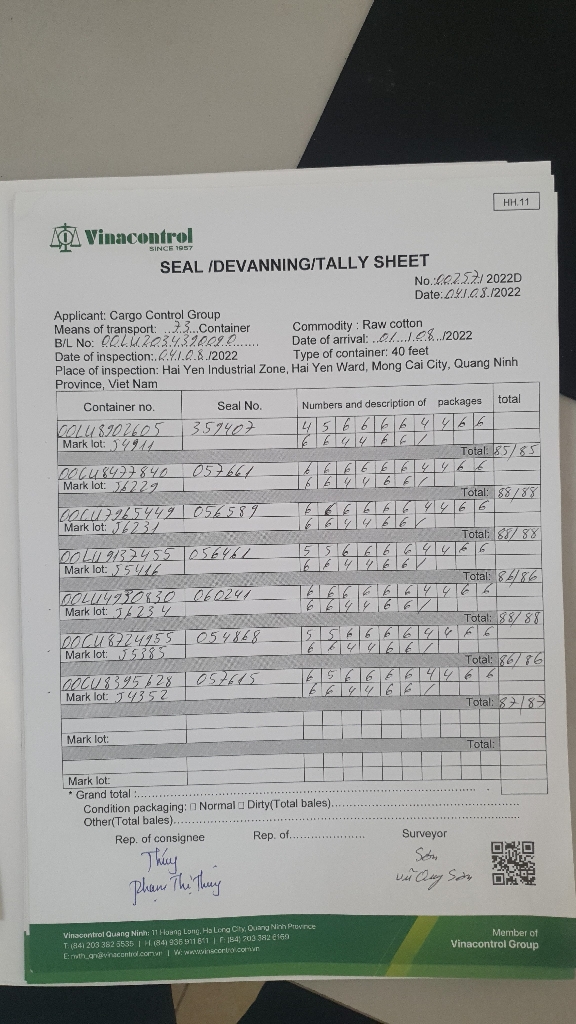 HH.11
Vinacontrol
SINCE 1957
SEAL /DEVANNING/TALLY SHEET
No.:00257/ 2022D
Date:04/.0.8./2022
Applicant: Cargo Control Group
Means of transport: ..73...Container
Commodity : Raw cotton
B/L No: OOLU2034390090.......
Date of arrival: ..01../.08../2022
Date of inspection:.04/.0.8./2022
Type of container: 40 feet
Place of inspection: Hai Yen Industrial Zone, Hai Yen Ward, Mong Cai City, Quang Ninh
Province, Viet Nam
Container no. Seal No. Numbers and description of packages total
OOLU8902605 359407 4 5 6 6 6 6 4 4 6 6
Mark lot: J4911 6 6 4 4 6 6 /
Total: 85/85
OOCU8477840 057661 6 6 6 6 6 6 4 4 6 6
Mark lot: J6229 6 6 4 4 6 6 /
Total: 88/88
OOCU7965449 056589 6 6 6 6 6 6 4 4 6 6
Mark lot: J6231 6 6 4 4 6 6 /
Total: 88/88
OOLU9137455 056461 5 5 6 6 6 6 4 4 6 6
Mark lot: J5416 6 6 4 4 6 6 /
Total: 86/86
OOLU4930830 060241 6 6 6 6 6 6 4 4 6 6
Mark lot: J6234 6 6 4 4 6 6 /
Total: 88/88
OOCU8724955 054868 5 5 6 6 6 6 4 4 6 6
Mark lot: J5385 6 6 4 4 6 6 /
Total: 86/86
OOCU8395628 057615 6 5 6 6 6 6 4 4 6 6
Mark lot: J4352 6 6 4 4 6 6 /
Total: 87/87
Mark lot:
Total:
Mark lot:
* Grand total :
Condition packaging: □ Normal □ Dirty(Total bales)
Other(Total bales)
Rep. of consignee Rep. of Surveyor
Thúy Sơn
Phạm Thị Thúy Vũ Quy Sơn
Vinacontrol Quang Ninh: 11 Hoang Long, Ha Long City, Quang Ninh Province
T: (84) 203 382 5535 | H: (84) 936 911 811 | F: (84) 203 382 6169
E: nvth_qn@vinacontrol.com.vn | W: www.vinacontrol.com.vn
Member of
Vinacontrol Group